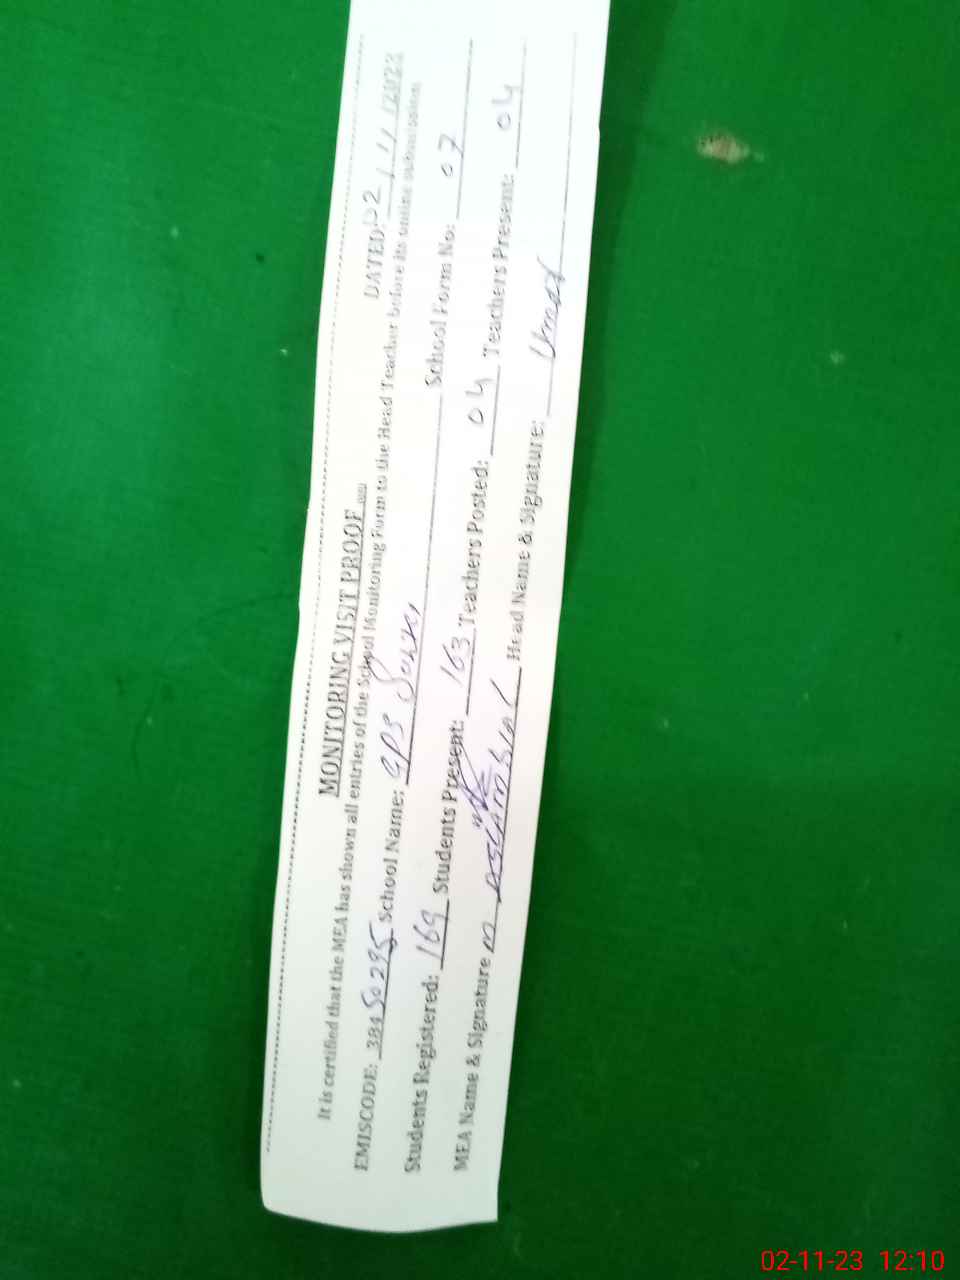 MONITORING VISIT PROOF DATED 02/11/2023
It is certified that the MEA has shown all entries of the School Monitoring Form to the Head Teacher before its online submission
EMISCODE: 38450295 School Name: GPS School Form No: 07
Students Registered: 169 Students Present: 163 Teachers Posted: 04 Teachers Present: 04
MEA Name & Signature M Head Name & Signature: Umar
02-11-23 12:10